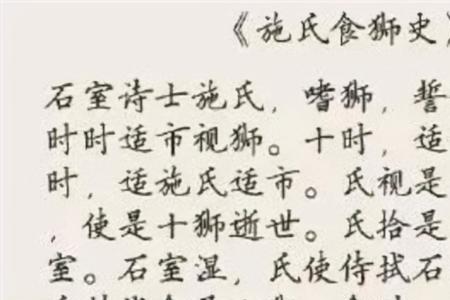 《施氏食狮史》
石室诗士施氏，嗜狮，誓
时时适市视狮。十时，适
时，适施氏适市。氏视是
，使是十狮逝世。氏拾是
室。石室湿，氏使侍拭石